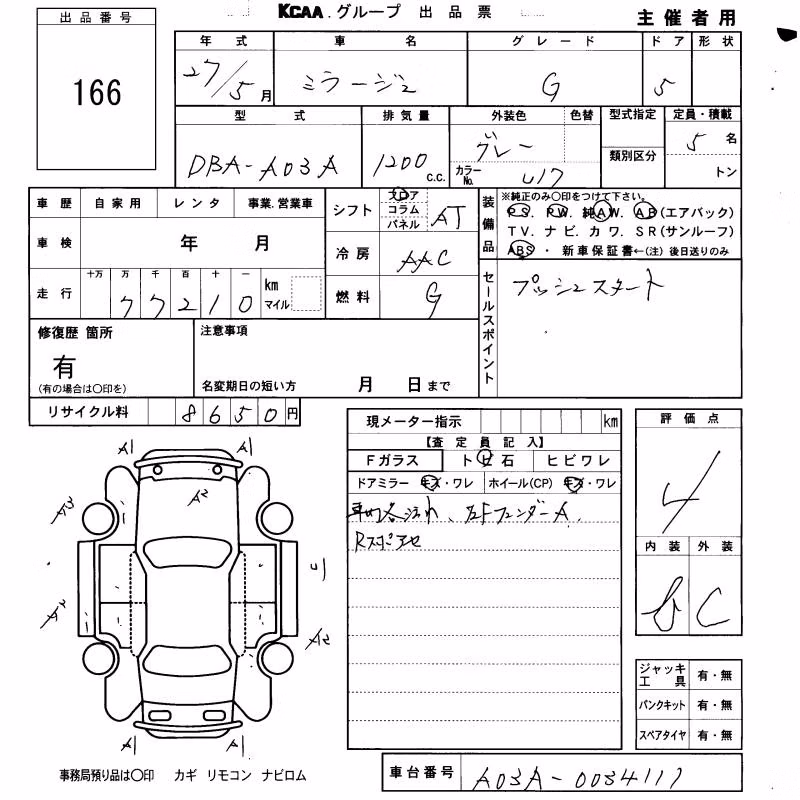 KCAA.グループ 出品票
主催者用
出品番号
166
年式 車名 グレード ドア 形状
27/5月 ミラージュ G 5
型式 排気量 外装色 色替 型式指定 定員・積載
DBA-A03A 1200 c.c. グレー カラーNo. U17 類別区分 5名 トン
車歴 自家用 レンタ 事業.営業車
車検 年 月
走行 十万 万 千 百 十 一
77210 km マイル
シフト フロア コラム パネル AT
冷房 AAC
燃料 G
装備品
※純正のみ〇印をつけて下さい。
PS. PW. 純AW. AB(エアバック)
TV. ナビ. カワ. SR(サンルーフ)
ABS ・ 新車保証書←(注) 後日送りのみ
セールスポイント
プッシュスタート
修復歴 箇所
有
(有の場合は〇印を)
注意事項
名変期日の短い方 月 日まで
リサイクル料 8650円
現メーター指示 km
【査定員記入】
Fガラス トビ石 ヒビワレ
ドアミラー キズ・ワレ ホイール(CP) キズ・ワレ
車内 汚れ、左FフェンダーA.
評価点
4
内装 外装
C
A1 A1
A2
A3
U1
A2
A2
A1 A1
ジャッキ工具 有・無
パンクキット 有・無
スペアタイヤ 有・無
事務局預り品は〇印 カギ リモコン ナビロム
車台番号 A03A-0034117